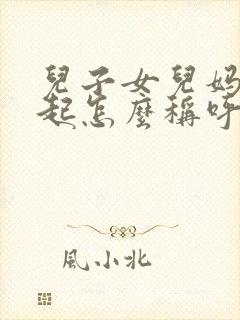 兒子女兒媽
起怎麼稱呼
風小北